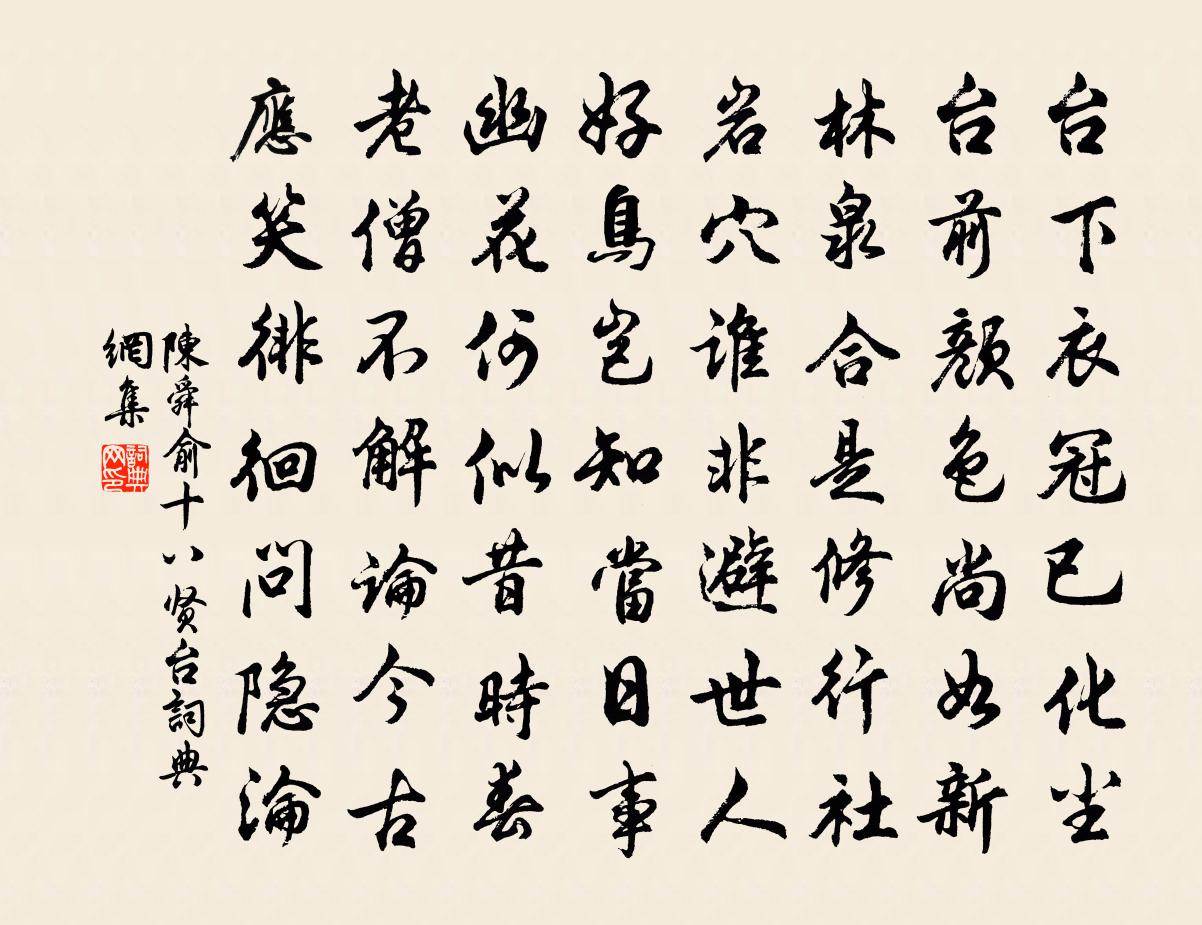 台下衣冠已化尘
台前颜色尚如新
林泉合是修行社
岩穴谁非避世人
好鳥岂知當日事
幽花何似昔時春
老僧不解論今古
應笑徘徊問隐淪
陳舜俞十八贤台詞典
網集
詞典
网印